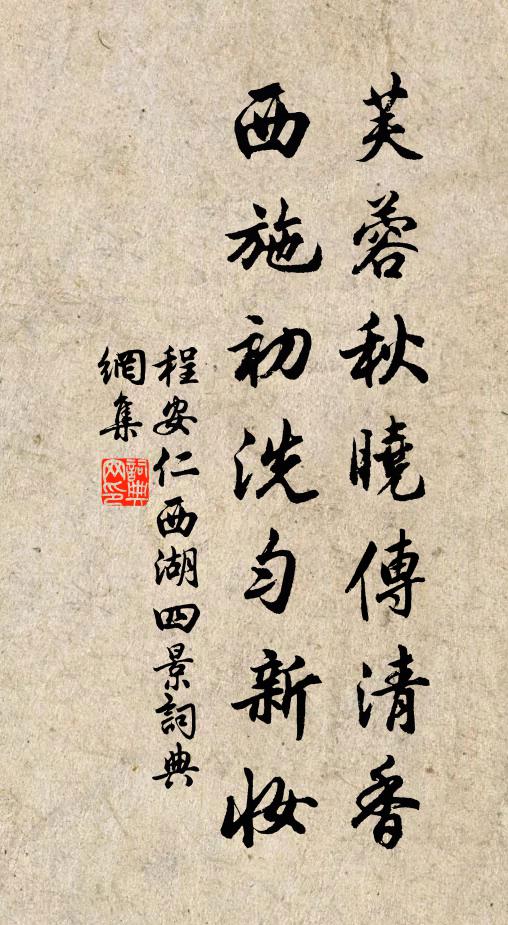 芙蓉秋曉傳清香
西施初洗勻新妝
程安仁西湖四景詞典
網集
詞典網印